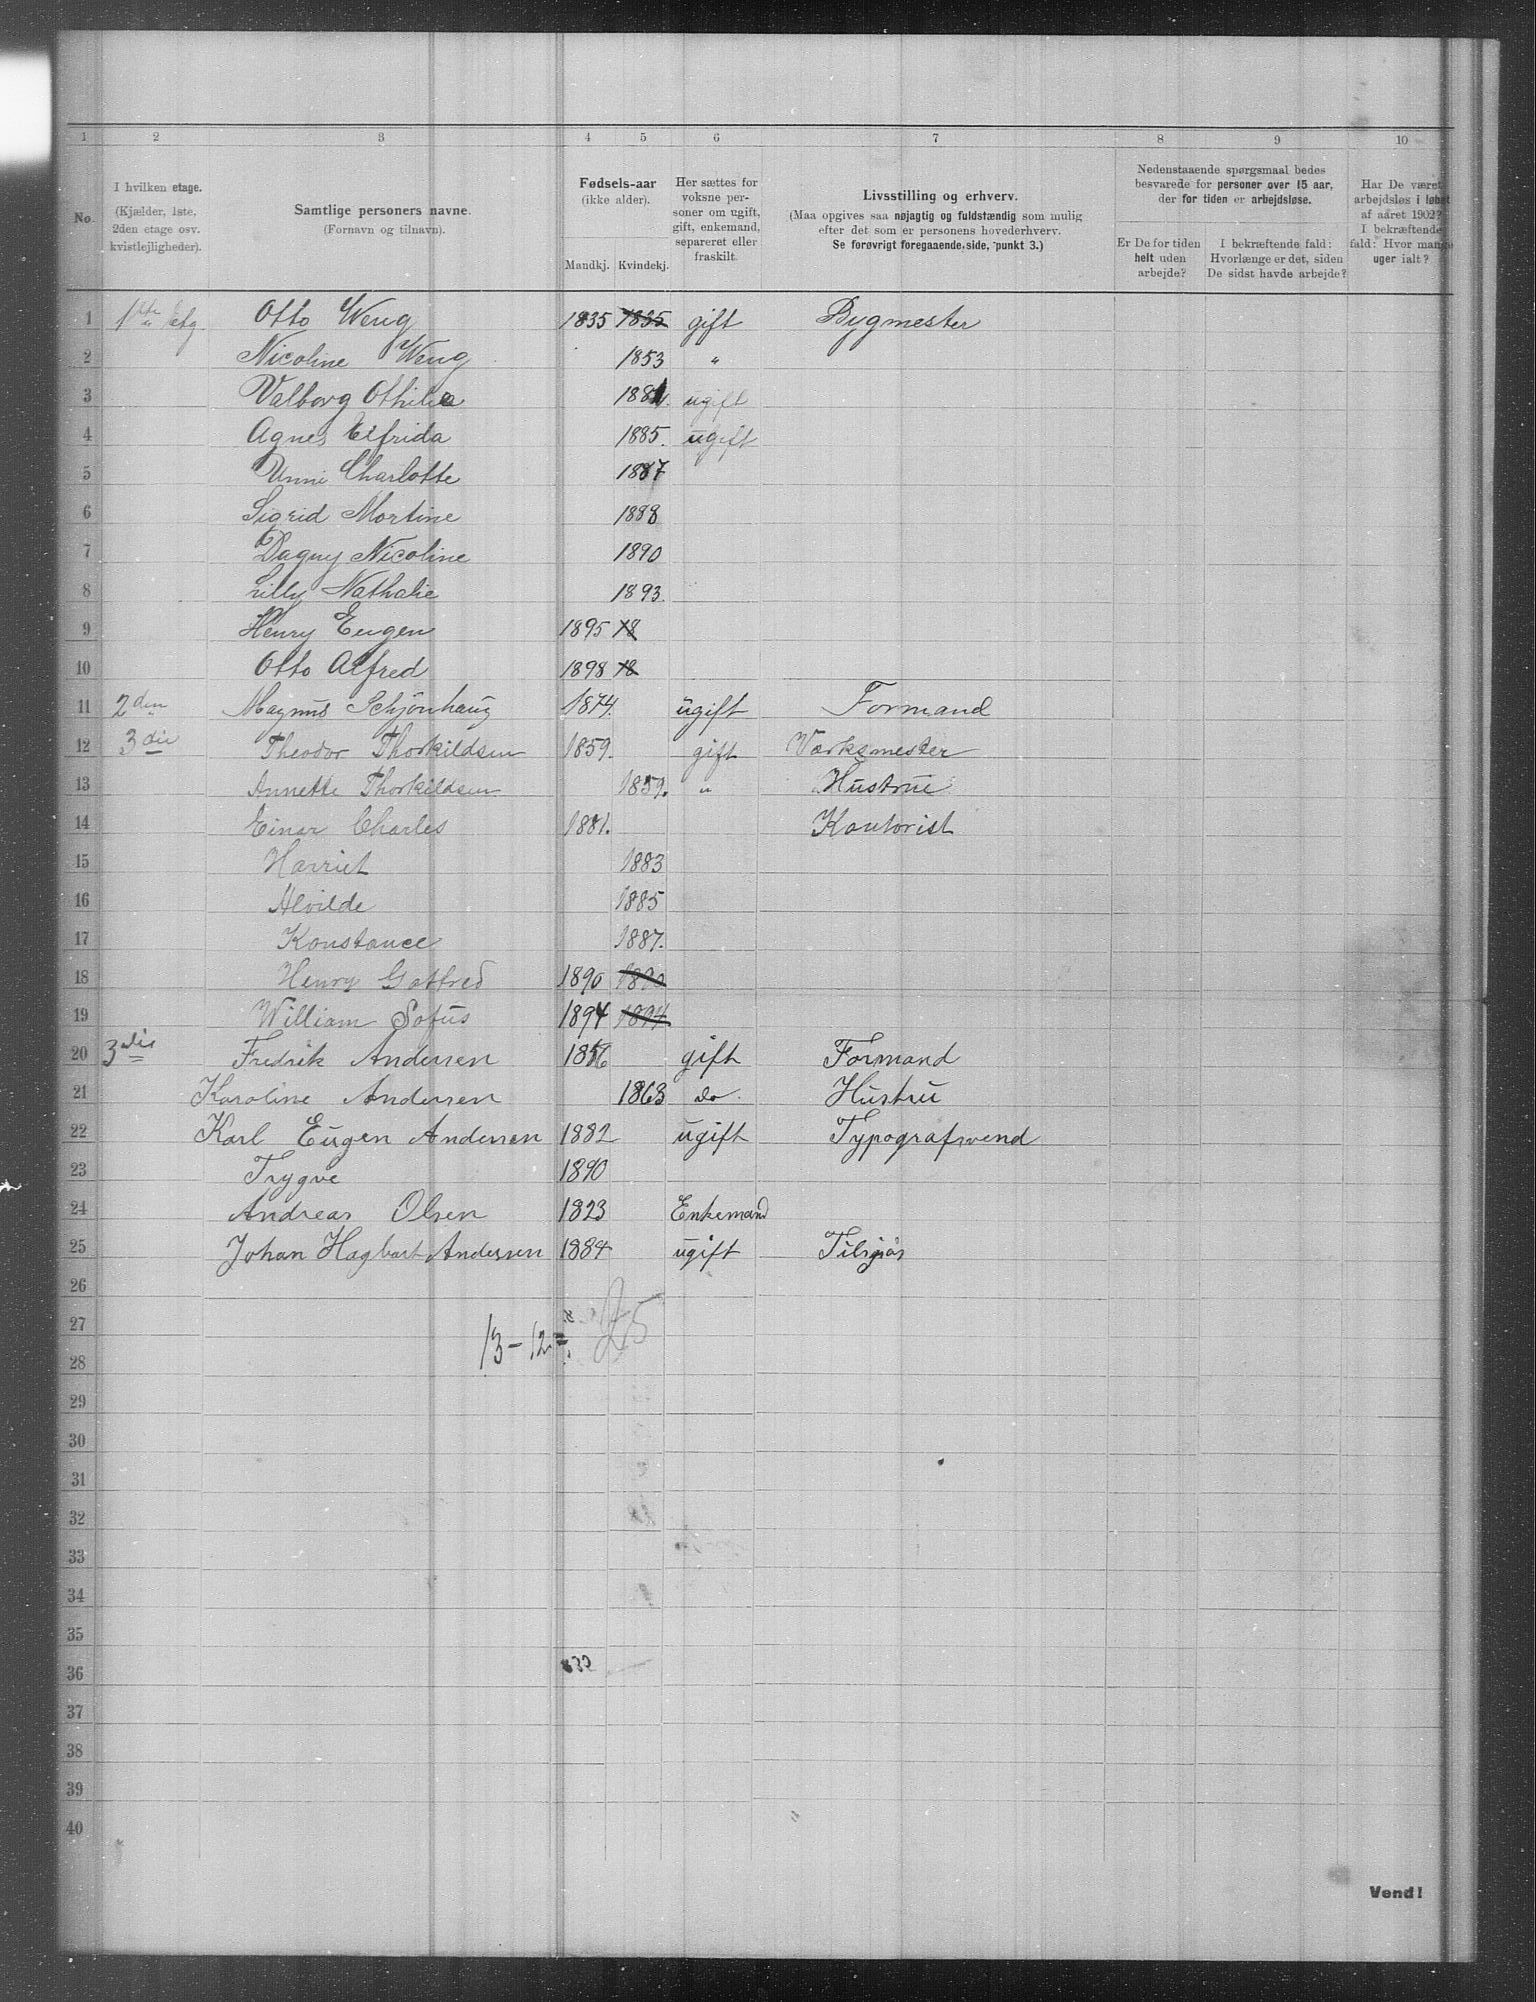 1 2 3 4 5 6 7 8 9 10
No.
I hvilken etage.
(Kjælder, 1ste,
2den etage osv.
kvistlejligheder).
Samtlige personers navne.
(Fornavn og tilnavn).
Fødsels-aar
(ikke alder).
Mandkj. Kvindekj.
Her sættes for
voksne per-
soner om ugift,
gift, enkemand,
separeret eller
fraskilt.
Livsstilling og erhverv.
(Maa opgives saa nøjagtig og fuldstændig som mulig
efter det som er personens hovederhverv.
Se forøvrigt foregaaende side, punkt 3.)
Nedenstaaende spørgsmaal bedes
besvarede for personer over 15 aar,
der for tiden er arbejdsløse.
Er De for tiden
helt uden
arbejde?
I bekræftende fald:
Hvorlænge er det, siden
De sidst havde arbejde?
Har De været
arbejdsløs i løbet
af aaret 1902?
I bekræftende
fald: Hvor mange
uger ialt?
1 1ste etg Otto Weng 1835 1835 gift Bygmester
2 Nicoline Weng 1853 "
3 Valborg Othilie ugift
4 Agnes Elfrida 1885. ugift
5 Unni Charlotte 1887
6 Sigrid Martine 1888
7 Dagny Nicoline 1890
8 Lilly Nathalie 1893.
9 Henry Eugen 1895 18
10 Otto Alfred 1898 18
11 2den Magnus Schjønhaug 1874. ugift Formand
12 3die Theodor Thorkildsen 1859. gift Værksmester
13 Annette Thorkildsen 1859. " Hustrue
14 Einar Charles 1881. Kontorist
15 Harriet 1883
16 Alvilde 1885
17 Konstance 1887.
18 Henry Gotfred 1890 1890
19 William Sofus 1894 1894
20 3die Fredrik Andersen 1856 gift Formand
21 Karoline Andersen 1863 do. Hustru
22 Karl Eugen Andersen 1882 ugift Typografsvend
23 Trygve 1890
24 Andreas Olsen 1823 Enkemand
25 Johan Hagbart Andersen 1884 ugift Tilsjøs
26
27
13-12= 25
28
29
30
31
32
33
34
35
36
37
38
39
40
Vend!